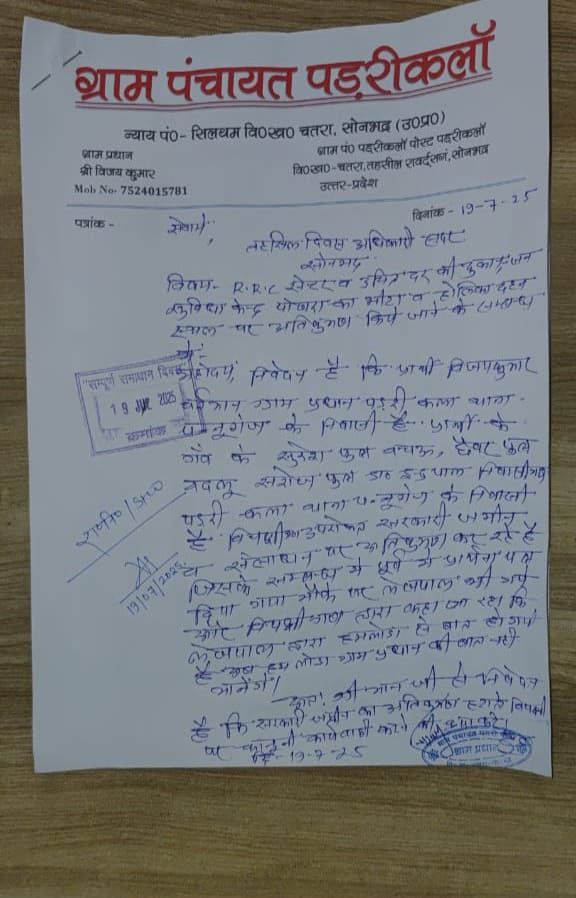 ग्राम पंचायत पड़रीकलॉ
न्याय पं०- सिलथम वि०ख० चतरा, सोनभद्र (उ०प्र०)
ग्राम प्रधान
श्री विजय कुमार
Mob No- 7524015781
ग्राम पं० पड़रीकलॉ पोस्ट पड़रीकलॉ
वि०ख०-चतरा,तहसील रावर्टसगंज, सोनभद्र
उत्तर-प्रदेश
पत्रांक -
दिनांक - 19-7-25
सेवामें,
तहसिल दिवस अधिकारी सदर
सोनभद्र
विषय- R.R.C सेन्टर व उचित दर की दुकान, जन
सुविधा केन्द्र पोखरा का भीटा व होलिका दहन
स्थल पर अतिक्रमण किये जाने के सम्बन्ध
में:
महोदय, निवेदन है कि प्रार्थी विजयकुमार
"सम्पूर्ण समाधान दिवस"
19 JUL 2025
क्रमांक
वर्तमान ग्राम प्रधान पड़री कला थाना-
के निवासी है प्रार्थी के
गाँव के सुरेश पुत्र
सरोज पुत्र इन्द्रपाल निवासीगण
पड़री कला थाना के निवासी
है विपक्षीगण उपरोक्त सरकारी जमीन
व खलिहान पर अतिक्रमण कर रहे है
जिसके सम्बन्ध में पूर्व में प्रार्थना पत्र
दिया गया मौके पर लेखपाल भी गये
और विपक्षीगण द्वारा कहा जा रहा कि
लेखपाल द्वारा हमलोगो से बात हो गयी
है अब हम लोग ग्राम प्रधान की बात नही
मानेंगे।
अतः श्री मान जी से निवेदन
है कि सरकारी जमीन का अतिक्रमण हटाते विपक्षी
पर कानूनी कार्यवाही करने की कृपा करें।
19-7-25
19/07/2025
ग्राम पंचायत
ग्राम प्रधान